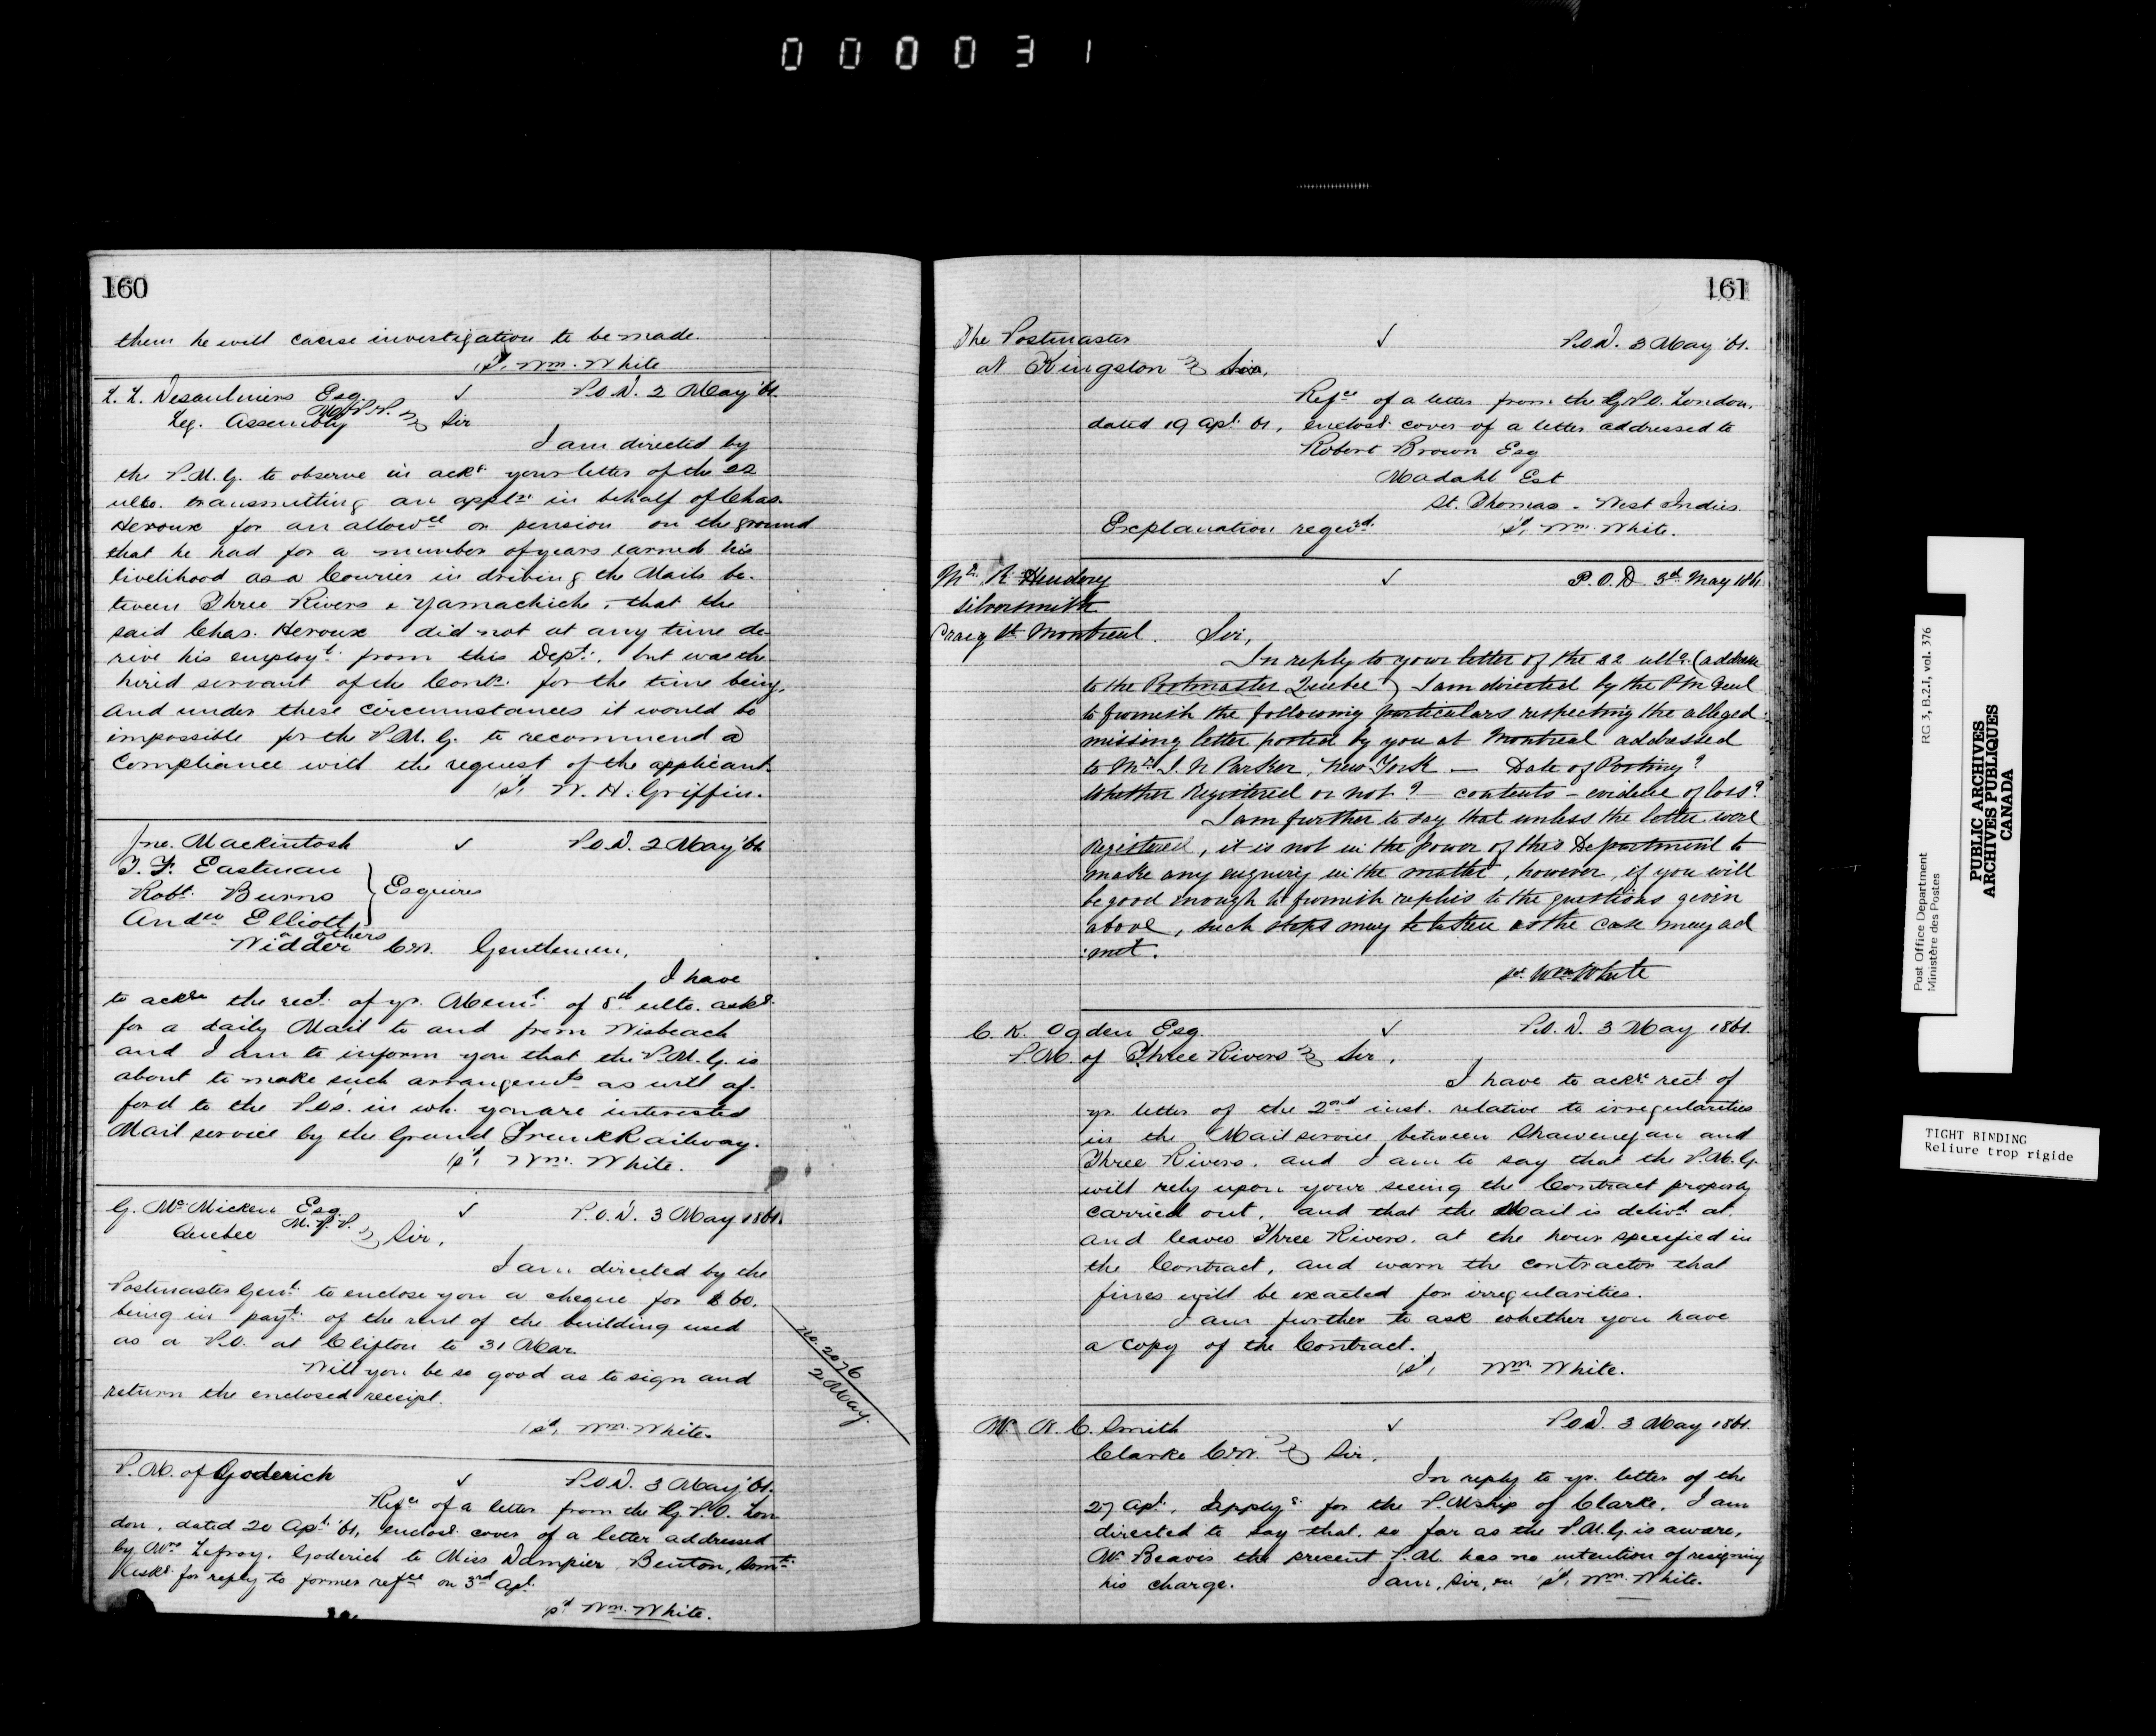 000031
160
them he will cause investigation to be made.
/sd, Wm. White
L. L. Desaulniers Esq. M.P.P. ✓ P.O.D. 2 May '61.
Leg. Assembly Sir
I am directed by
the P.M.G. to observe in ackg. your letter of the 22
ulto. transmitting an appln. in behalf of Chas.
Heroux for an allowce or pension on the ground
that he had for a number of years earned his
livelihood as a Courier in driving the Mails be-
tween Three Rivers & Yamachiche, that the
said Chas. Heroux did not at any time de-
rive his employt. from this Dept., but was the
hired servant of the Contr. for the time being,
and under these circumstances it would be
impossible for the P.M.G. to recommend a
Compliance with the request of the applicant.
/sd, W. H. Griffin.
Jno. Mackintosh ✓ P.O.D. 2 May '61
T. F. Eastman
Robt. Burns } Esquires
Andw Elliott
& others
Widder C.W. Gentlemen,
I have
to ackge the rect. of yr. Meml. of 8th ulto. askg.
for a daily Mail to and from Wisbeach
and I am to inform you that the P.M.G. is
about to make such arrangemts as will af-
ford to the P.O's. in wh. you are interested
Mail service by the Grand Trunk Railway.
/sd, Wm. White.
G. McMicken Esq. M.P.P. ✓ P.O.D. 3 May 1861.
Quebec Sir,
I am directed by the
Postmaster Genl. to enclose you a cheque for $60,
being in payt. of the rent of the building used
as a P.O. at Clifton to 31 Mar.
Will you be so good as to sign and
return the enclosed receipt.
/sd, Wm. White.
No. 2076
2 May.
P.M. of Goderich ✓ P.O.D. 3 May '61.
Refce of a letter from the G.P.O. Lon-
don, dated 20 Apl. '61, enclosg. cover of a letter addressed
by Mrs Lefroy, Goderich to Miss Dampier, Benton, Somt.
Askg. for reply to former refce on 3rd Apl.
/sd Wm. White.
161
The Postmaster ✓ P.O.D. 3 May '61.
at Kingston Sir,
Refce of a letter from the G.P.O. London,
dated 19 Apl. 61, enclosg. cover of a letter addressed to
Robert Brown Esq
Madahl Est
St. Thomas - West Indies.
Explanation reqd. /sd, Wm. White.
Mr. R. Hendery ✓ P.O.D 3d May 1861
Silversmith
Craig St. Montreal. Sir,
In reply to your letter of the 22 ulto. (address
to the Postmaster Quebec) I am directed by the P M Genl
to furnish the following particulars respecting the alleged
missing letter posted by you at Montreal addressed
to Mr. I. N Parker, New York — Date of Posting?
Whether Registered or not? — contents — evidence of loss?
I am further to say that unless the letter were
Registered, it is not in the power of this Department to
make any enquiry in the matter, however, if you will
be good enough to furnish replies to the questions given
above, such steps may be taken as the case may ad
:mit.
sd. Wm White
C. K. Ogden Esq. ✓ P.O.D. 3 May 1861.
P.M. of Three Rivers Sir,
I have to ackge rect. of
yr. letter of the 2nd inst. relative to irregularities
in the Mail service between Shawenegan and
Three Rivers. and I am to say that the P.M.G.
will rely upon your seeing the Contract properly
carried out, and that the Mail is delivd. at
and leaves Three Rivers, at the hour specified in
the Contract, and warn the contractor that
fines will be exacted for irregularities.
I am further to ask whether you have
a copy of the Contract.
/sd, Wm. White.
Mr. W. C. Smith ✓ P.O.D. 3 May 1861.
Clarke C.W. Sir,
In reply to yr. letter of the
27 Apl., applyg. for the P.Mship of Clarke, I am
directed to say that, so far as the P.M.G. is aware,
Mr Beavis the present P.M. has no intention of resigning
his charge. I am, Sir, &c /sd, Wm. White.
Post Office Department RG 3, B.2.I, vol. 376
Ministère des Postes
PUBLIC ARCHIVES
ARCHIVES PUBLIQUES
CANADA
TIGHT BINDING
Reliure trop rigide